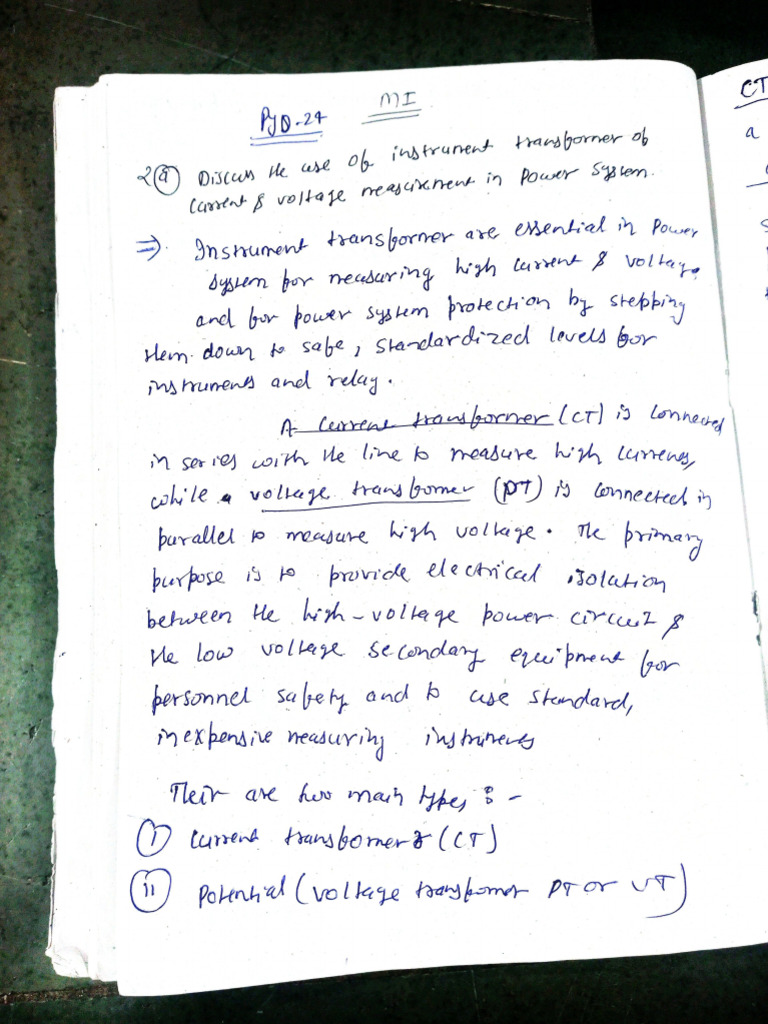 MI
PYQ-24
2(a) Discuss the use of instrument transformer of
current & voltage measurement in Power System.
⇒ Instrument transformer are essential in Power
system for measuring high current & voltage
and for power system protection by stepping
them down to safe, standardized levels for
instruments and relay.
A current transformer (CT) is connected
in series with the line to measure high currents,
while a voltage transformer (PT) is connected in
parallel to measure high voltage. The primary
purpose is to provide electrical isolation
between the high-voltage power circuit &
the low voltage secondary equipment for
personnel safety and to use standard,
inexpensive measuring instruments
Their are two main types :-
(i) Current transformer (CT)
(ii) Potential (voltage transformer PT or VT)
CT
a